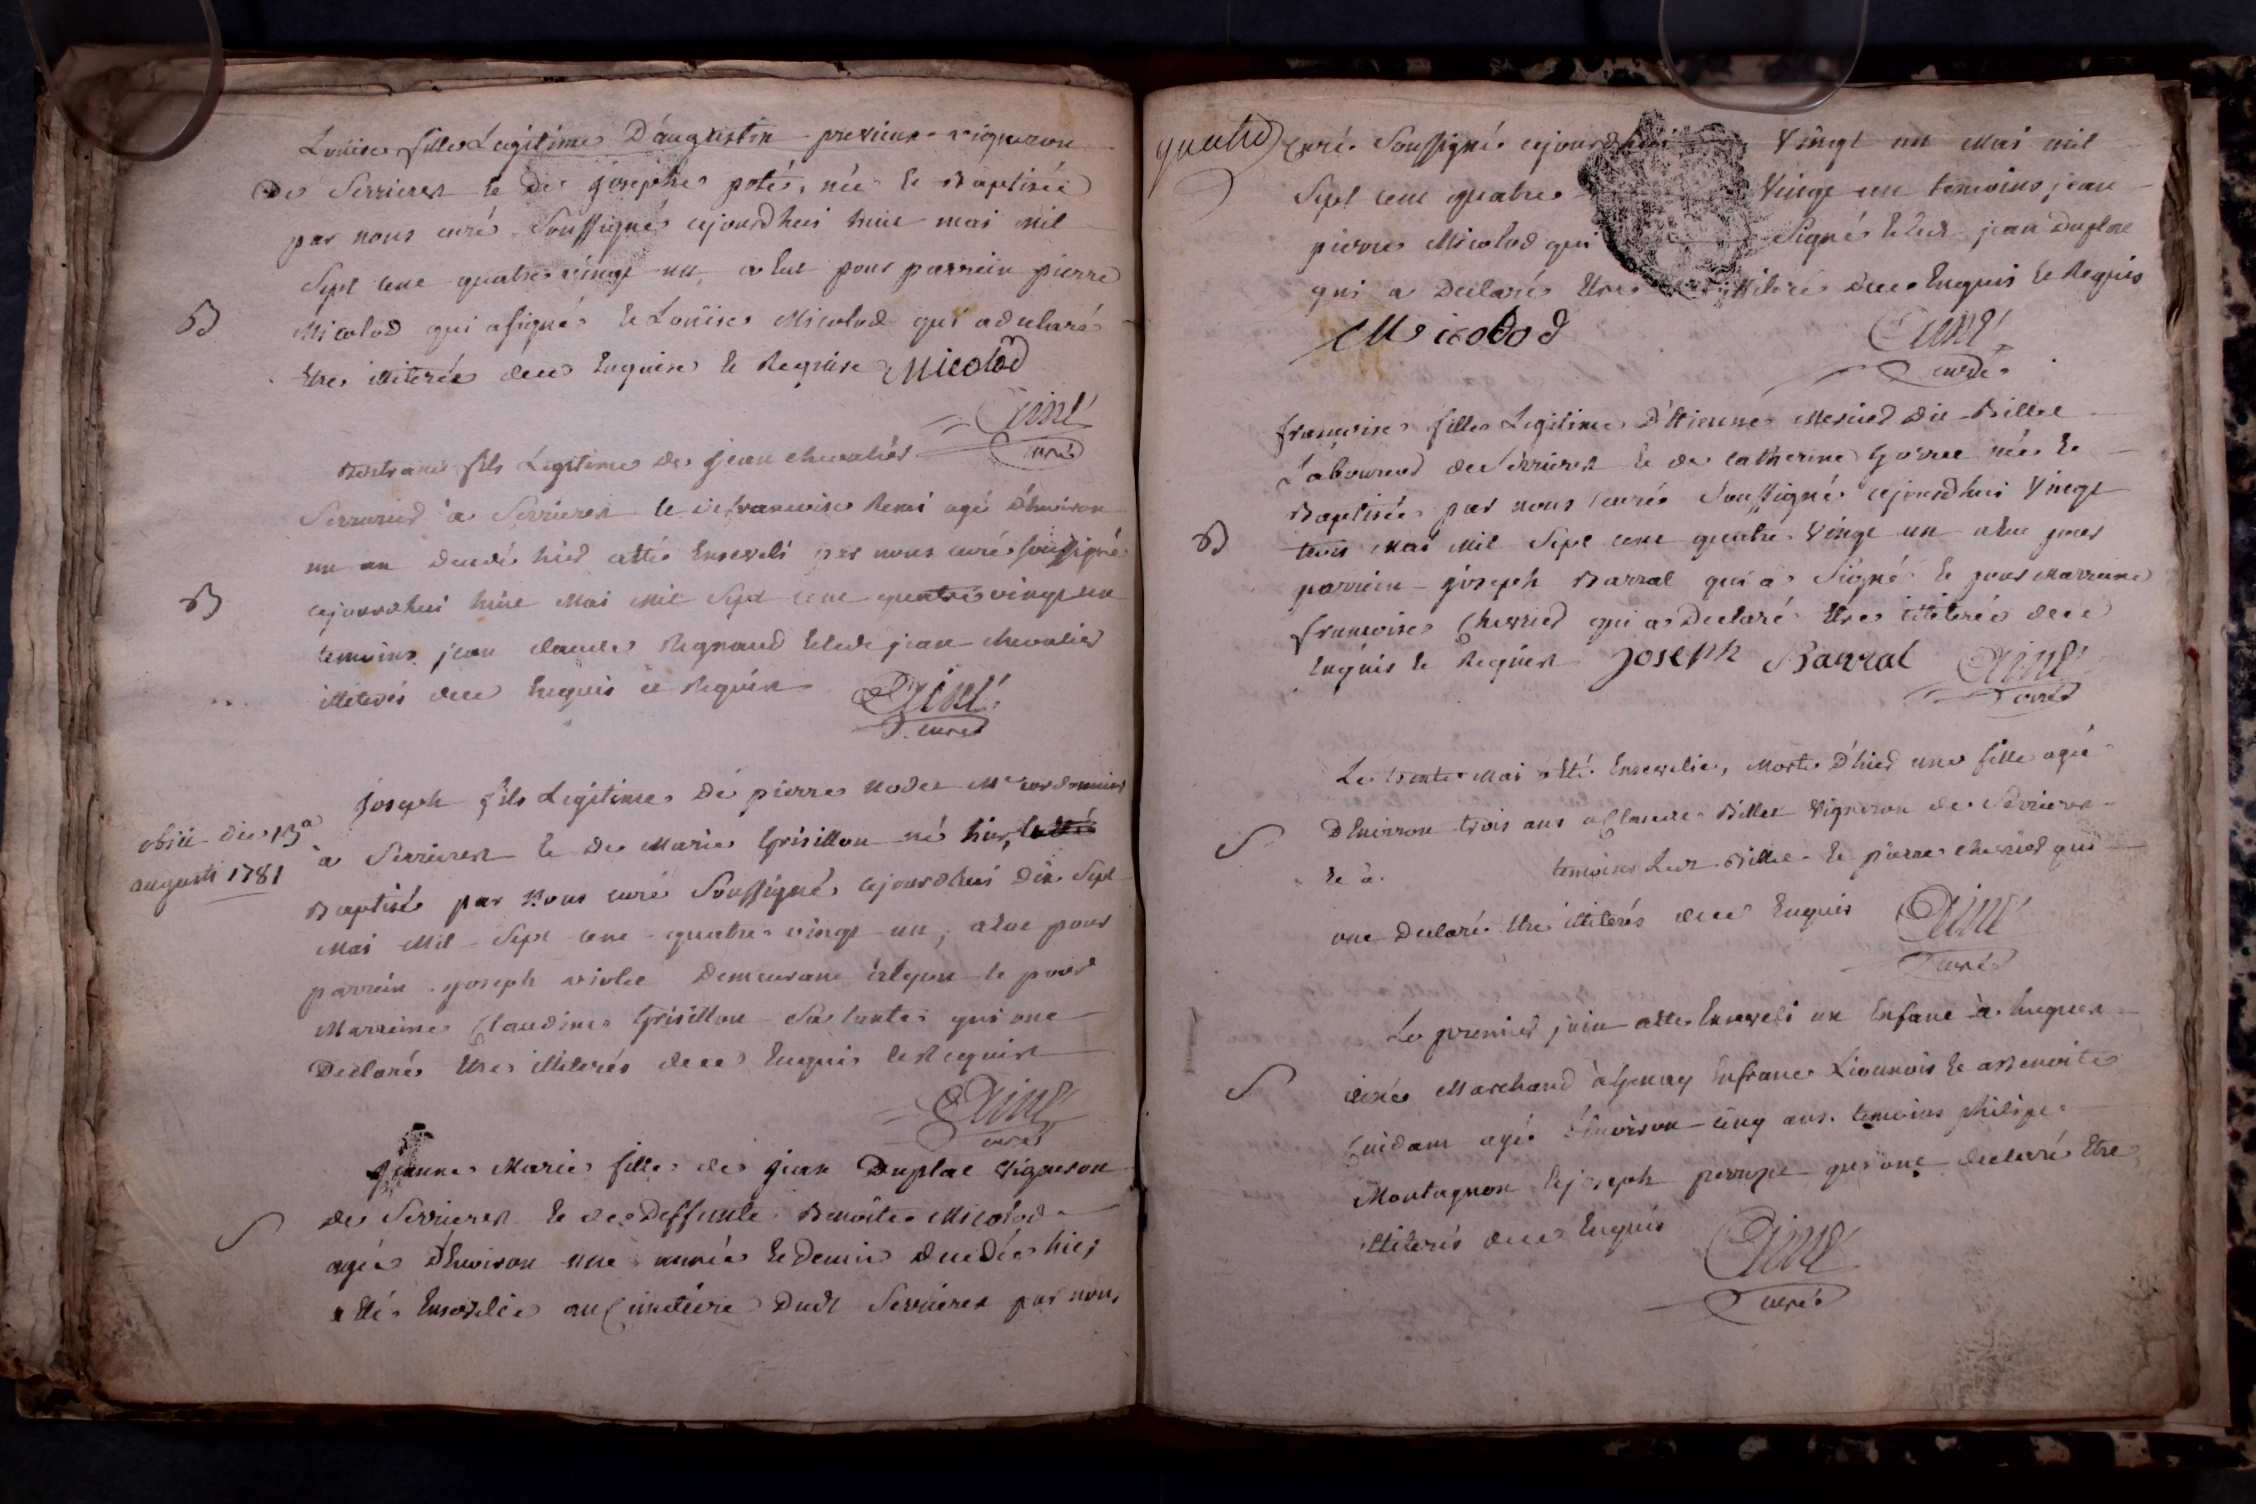 Loüise fille Legitime D'augustin previeux vigneron
De Serrieres et De josephe poté, née et Baptisée
par nous curé Soussigné cejourdhui huit mai mil
Sept cent quatre vingt un, a eut pour parrein pierre
B
Micolod qui a signé et Loüise Micolod qui a declaré
Etre illiterée dece Enquise et Requise Micolod
Ciné
curé
fils Legitime de jean chevalier
Serrurier à Serrieres et de francoise Remi agé D'environ
un an decedé hier a été Enseveli par nous curé soussigné
B
cejourdhui huit Mai Mil Sept cent quatre vingt un
temoins jean claude Regnaud et led jean chevalier
illiterés dece Enquis et Requis
Ciné
curé
joseph fils Legitime De pierre Nodet Me cordonnier
obiit die 13a
augusti 1781
à Serrieres et de Marie Grisillon né hier,
Baptisé par Nous curé Soussigné cejourdhui Dix Sept
Mai Mil Sept cent quatre vingt un, a eut pour
parrein joseph violet Demeurant à Leyon et pour
Marreine Claudine Grisillon Sa tante qui ont
Declaré Etre illiterés dece Enquis et Requis
Ciné
curé
jeanne Marie fille de jean Duplat Vigneron
S
de Serrieres et de Deffunte Benoite Micolod
agée D'environ une année et Demie decedée hier
a été Ensevelie au Cimetiere Dudt Serrieres par nous
quatre
curé Soussigné cejourdhui Vingt un Mai mil
Sept cent quatre Vingt un temoins jean
pierre Micolod qui Signé et led jean Duplat
qui a Declaré Etre illiteré dece Enquis et Requis
Micolod
Ciné
curé
francoise fille Legitime D'Etienne Mercier dit Billet
Laboureur de Serrieres et de catherine née et
Baptisée par nous curé Soussigné cejourdhui Vingt
B
trois Mai Mil Sept cent quatre Vingt un a eu pour
parrein joseph Barral qui a Signé et pour Marreine
francoise Chevrier qui a Declaré Etre illiterée dece
Enquis et Requise joseph Barral
Ciné
curé
Le trente Mai a été Ensevelie, Morte D'hier une fille agée
D'Environ trois ans a Claude Billet Vigneron de Serrieres
S
et à temoins Ledt Billet et pierre chevrier qui
ont Declaré Etre illiterés dece Enquis
Ciné
curé
Le premier juin a été Enseveli un Enfant à hugues
S
Marchand à Genay En franc Lionnois et a Benoite
agé D'Environ cinq ans. temoins philipe
Montagnon et joseph qui ont declaré Etre
illiterés dece Enquis
Ciné
curé